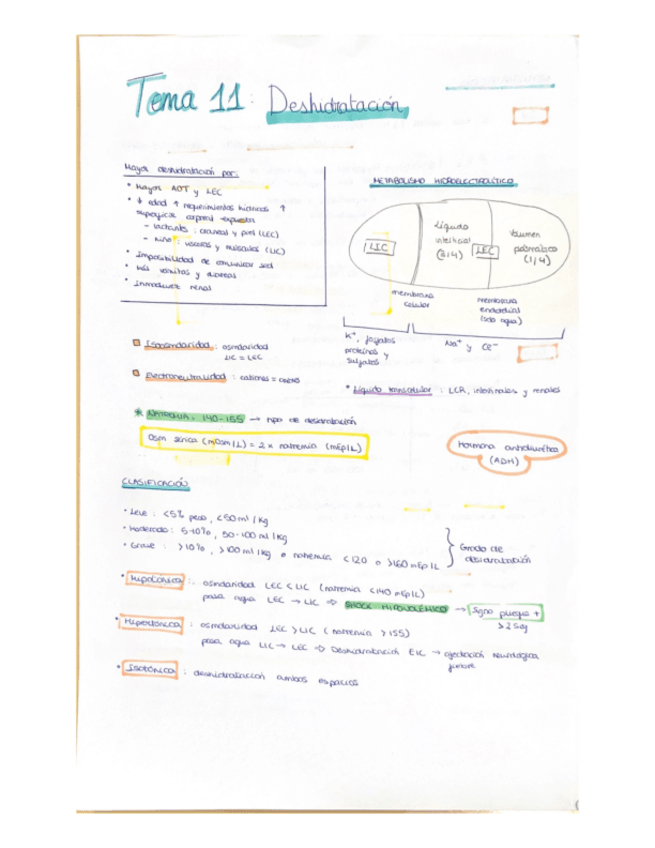 Tema 11: Deshidratación
Mayor deshidratación por:
• Mayor ACT y LEC
• ↓ edad ↑ requerimientos hídricos ↑
superficie corporal expuesta
- lactantes: craneal y piel (LEC)
- niño: vísceras y músculos (LIC)
• Imposibilidad de comunicar sed
• Más vómitos y diarreas
• Inmadurez renal
METABOLISMO HIDROELECTROLÍTICO
LIC
Líquido
intersticial
(3/4)
LEC
Volumen
plasmático
(1/4)
membrana
celular
membrana
endotelial
(solo agua)
K⁺, fosfatos
proteínas y
sulfatos
Na⁺ y Cl⁻
Isoosmolaridad: osmolaridad
LIC = LEC
Electroneutralidad: cationes = aniones
• Líquido transcelular: LCR, intestinales y renales
* NATREMIA: 140-155 → tipo de deshidratación
Osm sérica (mOsm/L) = 2 x natremia (mEq/L)
Hormona antidiurética
(ADH)
CLASIFICACIÓN
• Leve: <5% peso, <50 ml/kg
• Moderado: 5-10%, 50-100 ml/kg
• Grave: >10%, >100 ml/kg o natremia <120 o >160 mEq/L
Grado de
deshidratación
• Hipotónica: osmolaridad LEC < LIC (natremia <140 mEq/L)
pasa agua LEC → LIC ⇒ SHOCK HIPOVOLÉMICO → Signo pliegue +
> 2 seg
• Hipertónica: osmolaridad LEC > LIC (natremia > 155)
pasa agua LIC → LEC ⇒ Deshidratación EIC → afectación neurológica
• Isotónica: deshidratación ambos espacios